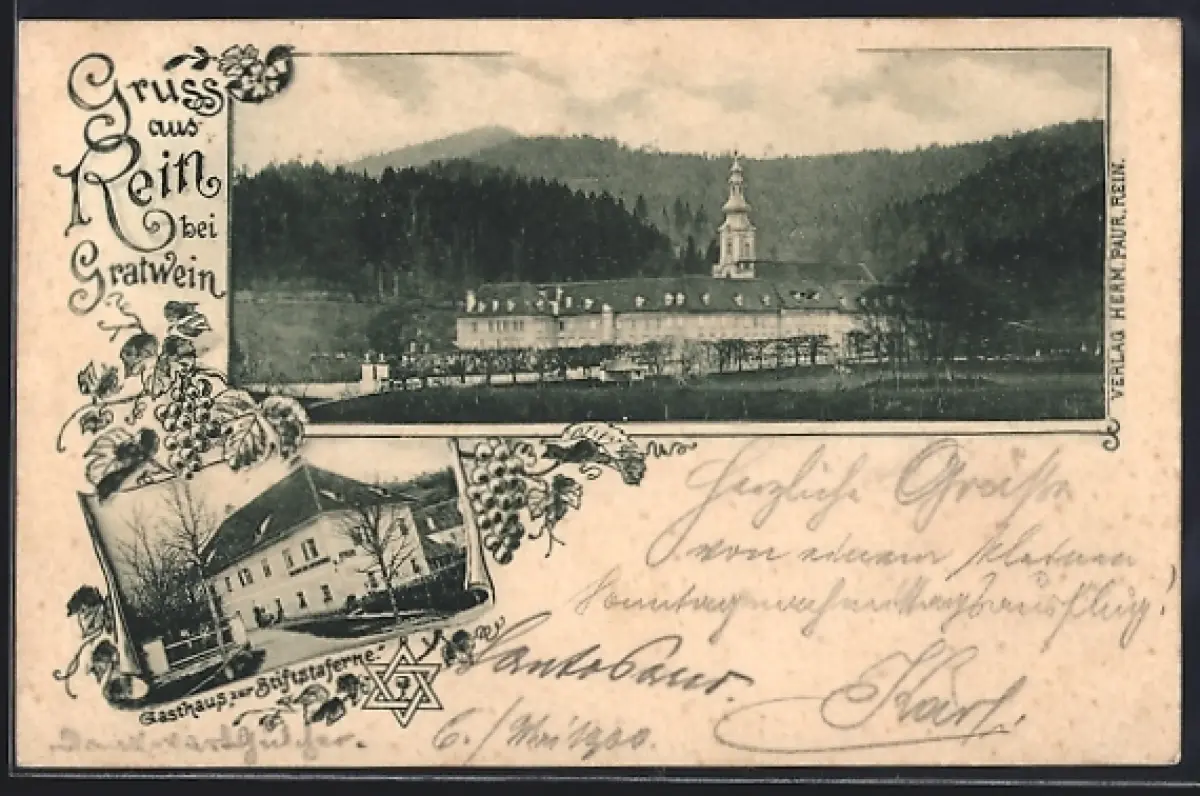 Gruss
aus
Rein
bei
Gratwein
VERLAG HERM. PAUR, REIN.
Herzliche Grüsse
von einem kleinen
Sonntagnachmittagsausflug!
Karl.
6./Mai 1900.
Gasthaus "zur Stiftstaferne."